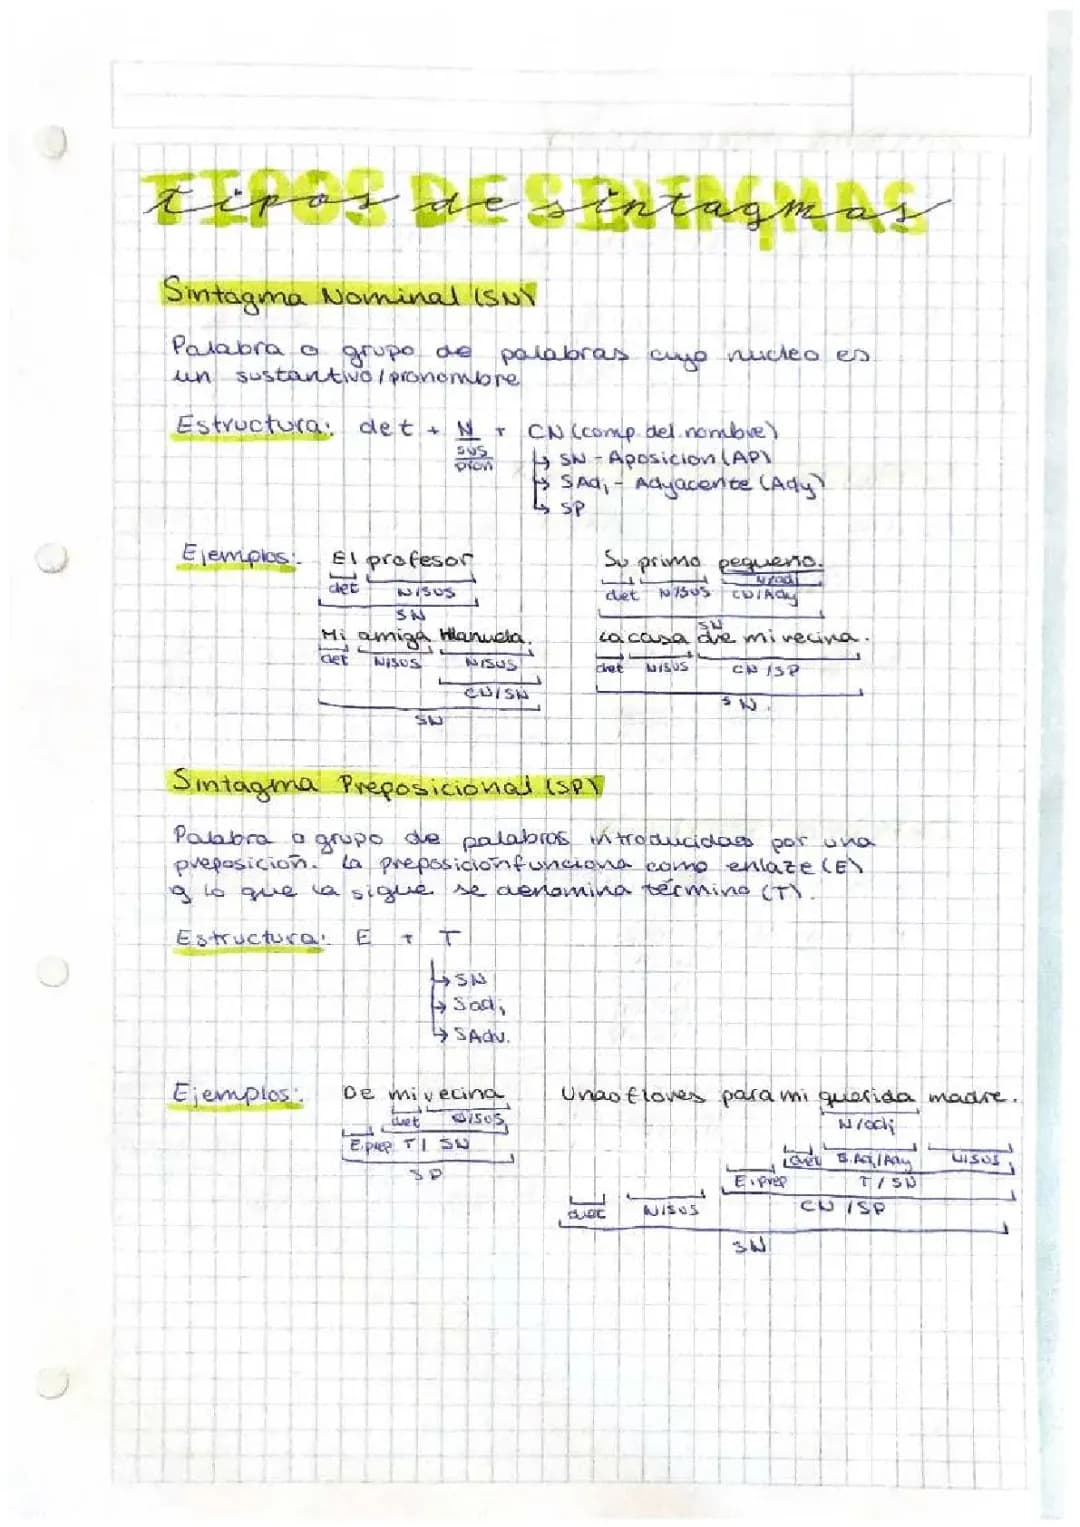 TIPOS DE SINTAGMAS
tipos de sintagmas
Sintagma Nominal (SN)
Palabra o grupo de palabras cuyo nucleo es
un sustantivo/pronombre
Estructura: det + N + CN (comp. del nombre)
sus
pron
↳ SN - Aposicion (AP)
↳ SAdj - Adyacente (Ady)
↳ SP
Ejemplos: El profesor Su primo pequeño.
N/adj
det N/SUS det N/SUS CN/Ady
SN SN
Mi amiga Manuela. La casa de mi vecina.
det N/SUS N/SUS det N/SUS CN/SP
CN/SN
SN SN
Sintagma Preposicional (SP)
Palabra o grupo de palabras introducidas por una
preposición. La preposición funciona como enlaze (E)
y lo que la sigue se denomina término (T).
Estructura: E + T
↳ SN
↳ Sadj
↳ SAdv.
Ejemplos: De mi vecina Unas flores para mi querida madre.
det N/SUS N/adj
E.prep T/ SN det S.Adj/Ady N/SUS
SP E.prep T/SN
det N/SUS CN/SP
SN